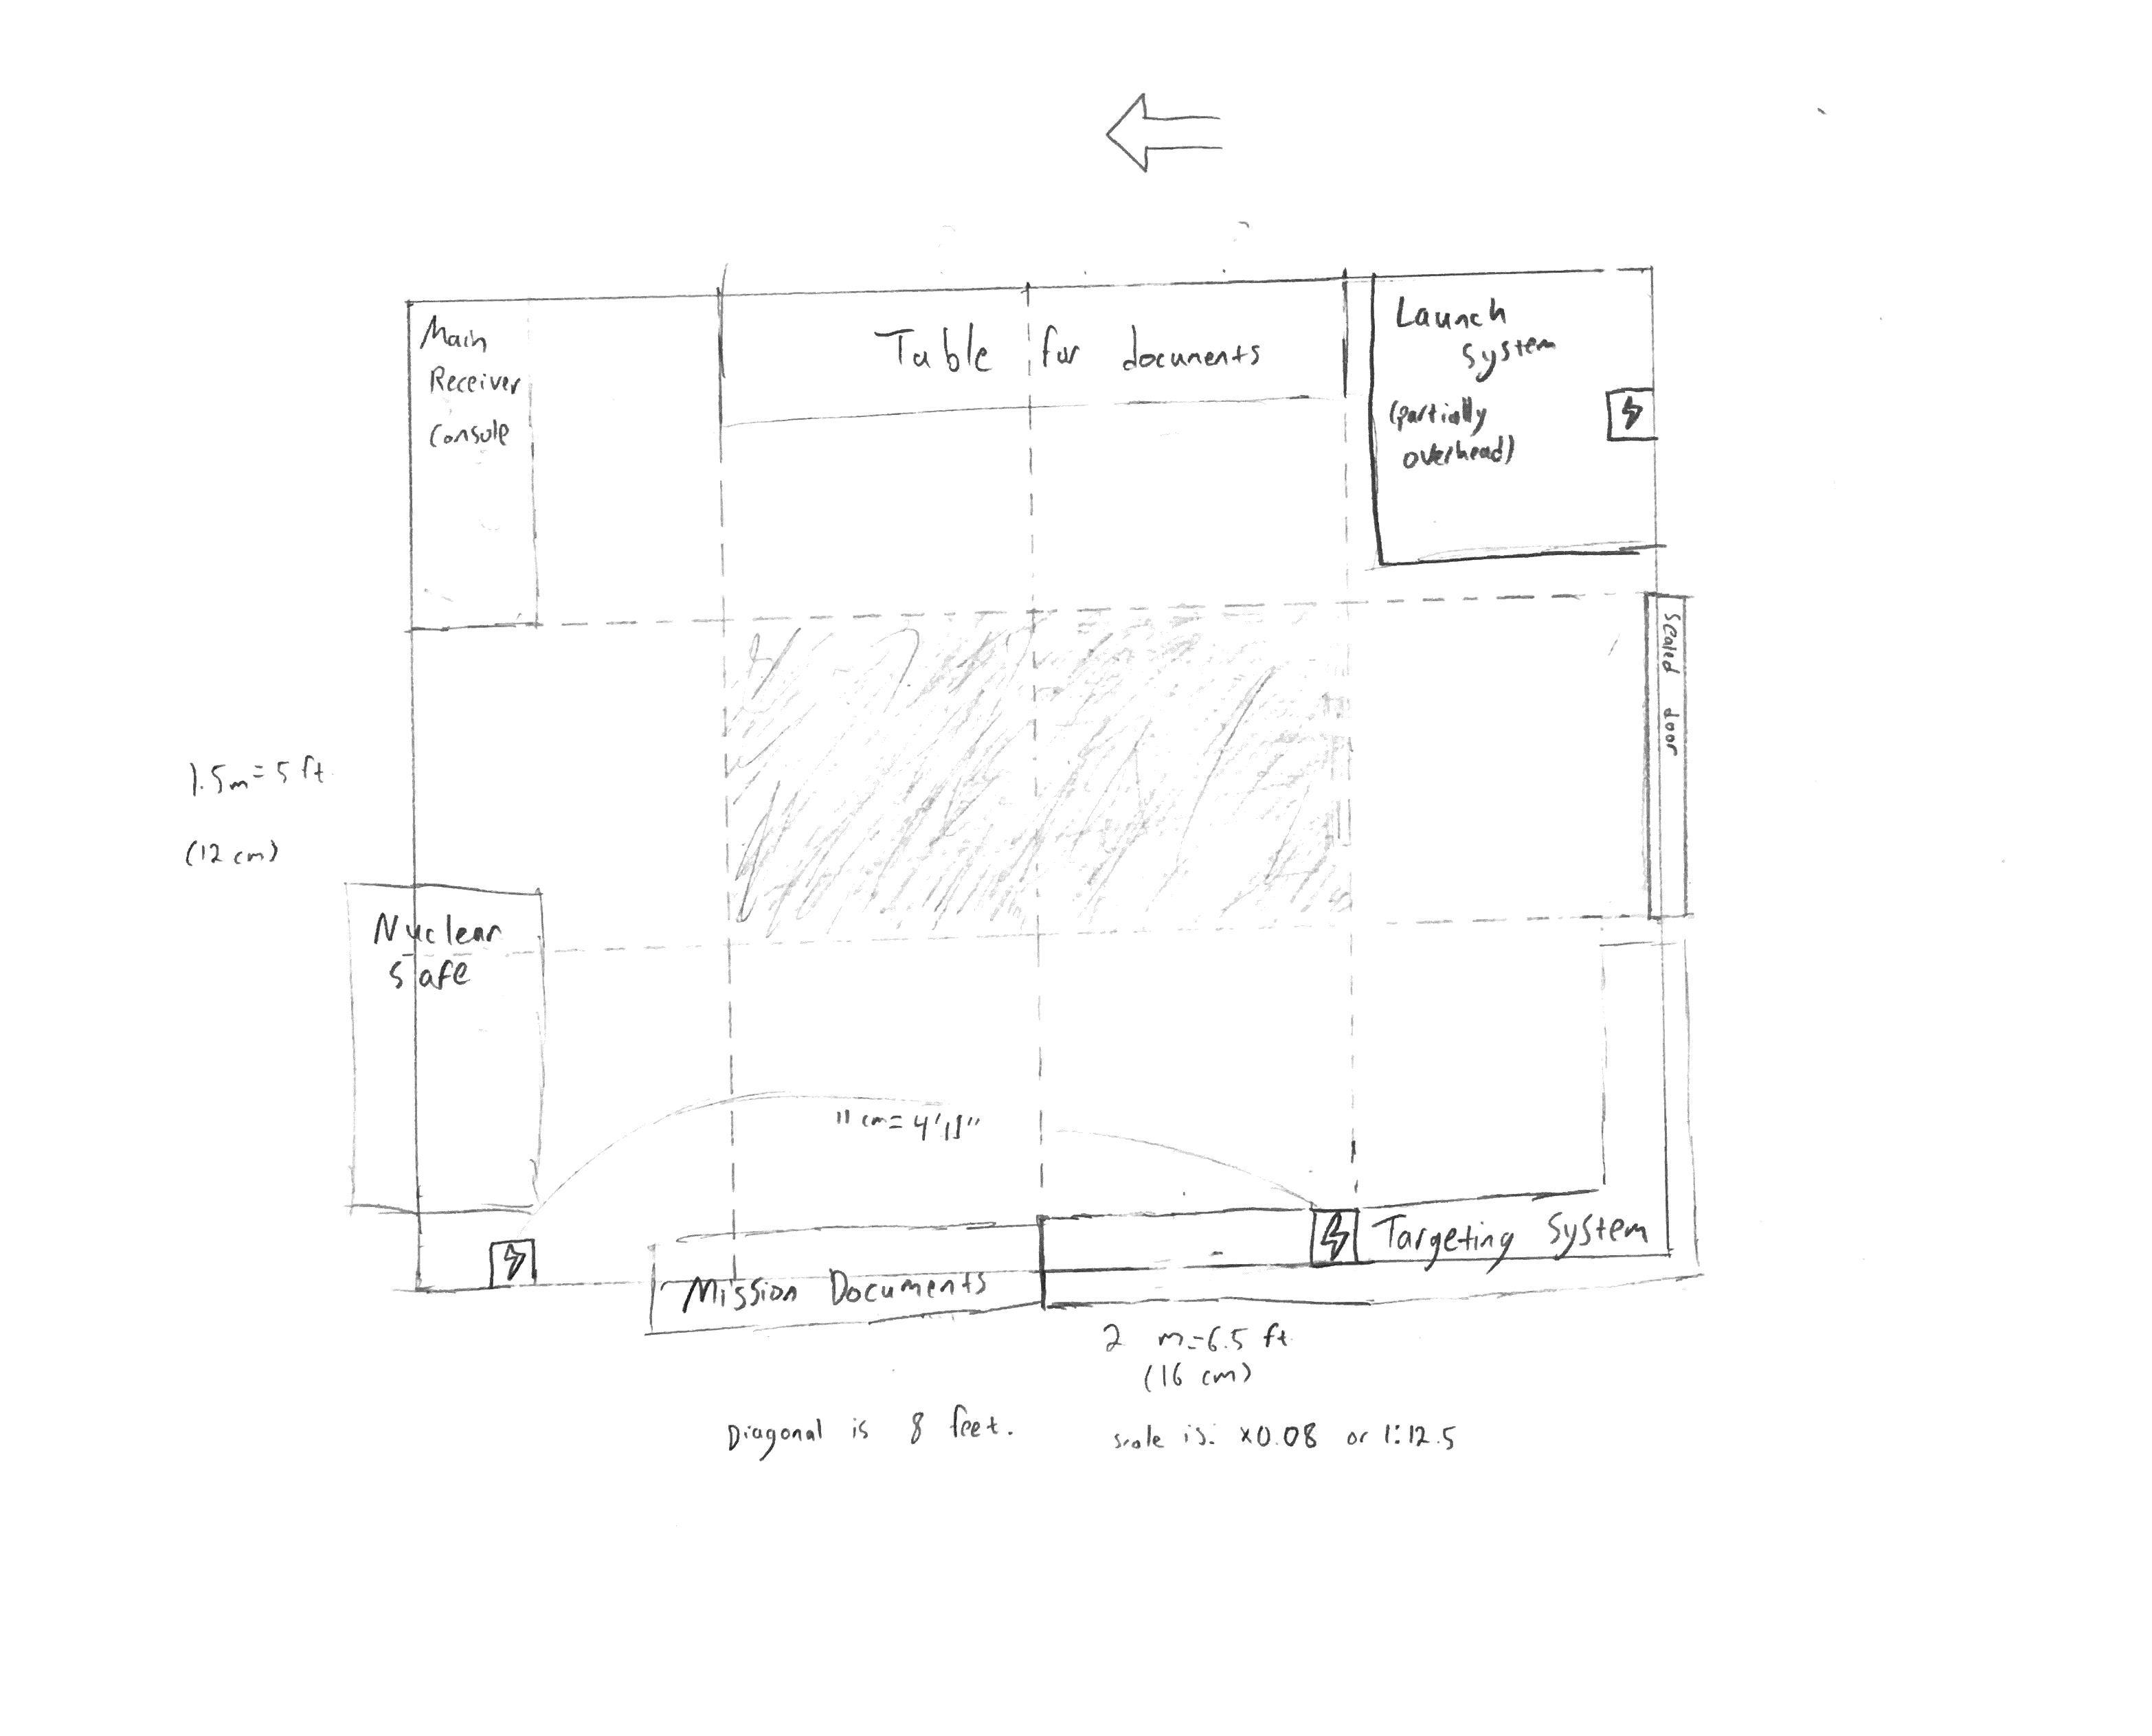 Main
Receiver
Console
Table for documents
Launch
System
(partially
overhead)
Sealed door
1.5m=5 ft
(12 cm)
Nuclear
Safe
11 cm= 4'11"
Mission Documents
Targeting System
2 m=6.5 ft
(16 cm)
Diagonal is 8 feet.
scale is: x0.08 or 1:12.5